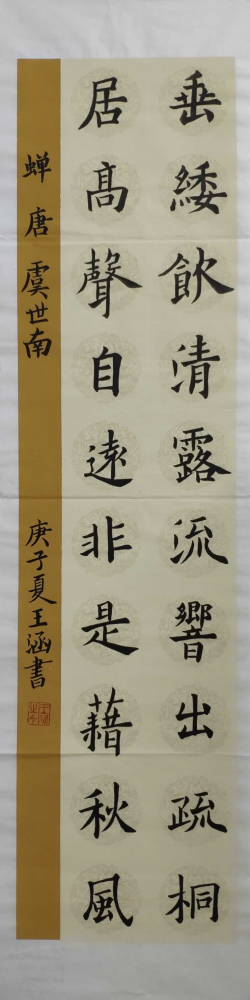 垂緌飲清露流響出疏桐
居高聲自遠非是藉秋風
蝉唐虞世南
庚子夏王涵書